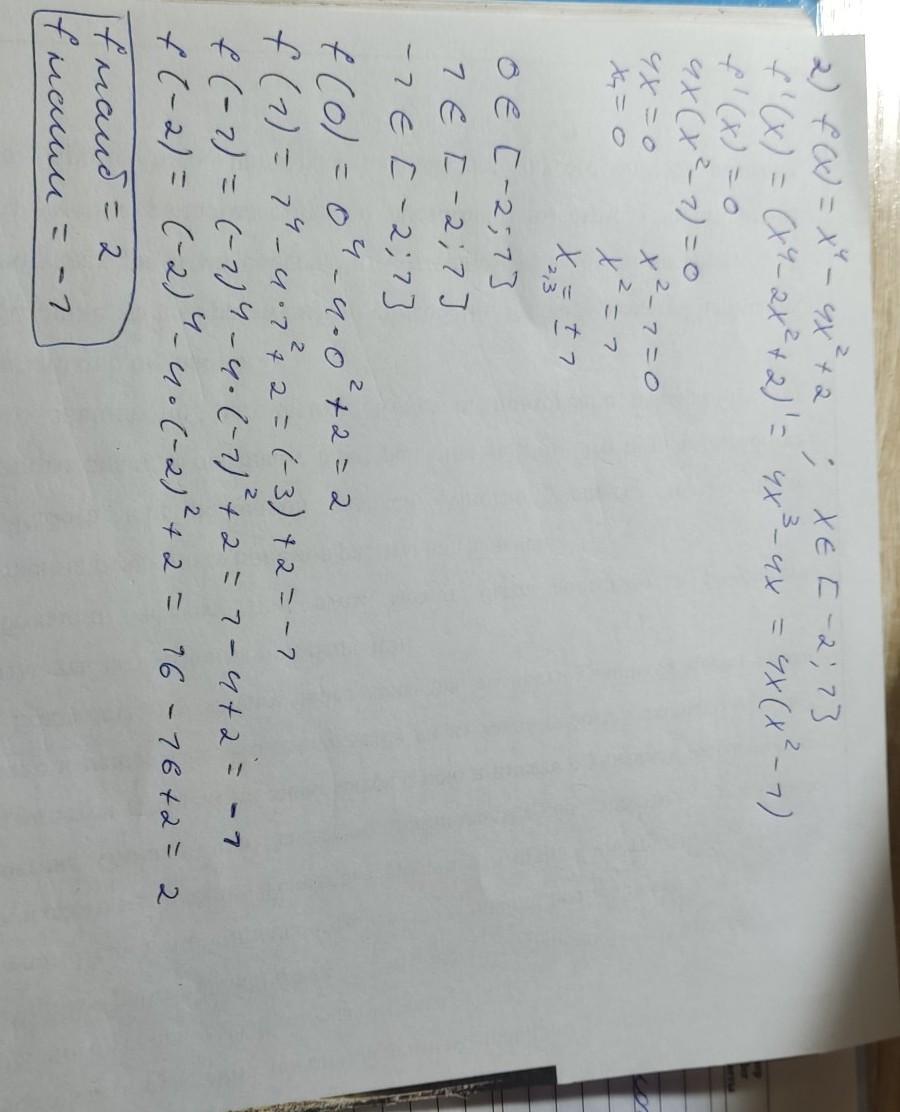 2) f(x) = x⁴ - 4x² + 2 ; x ∈ [-2; 1]
f'(x) = (x⁴ - 2x² + 2)' = 4x³ - 4x = 4x(x² - 1)
f'(x) = 0
4x(x² - 1) = 0
4x = 0 x² - 1 = 0
x₁ = 0 x² = 1
x₂,₃ = ± 1
0 ∈ [-2; 1]
1 ∈ [-2; 1]
-1 ∈ [-2, 1]
f(0) = 0⁴ - 4·0² + 2 = 2
f(1) = 1⁴ - 4·1² + 2 = (-3) + 2 = -1
f(-1) = (-1)⁴ - 4·(-1)² + 2 = 1 - 4 + 2 = -1
f(-2) = (-2)⁴ - 4·(-2)² + 2 = 16 - 16 + 2 = 2
f наиб = 2
f наим = -1